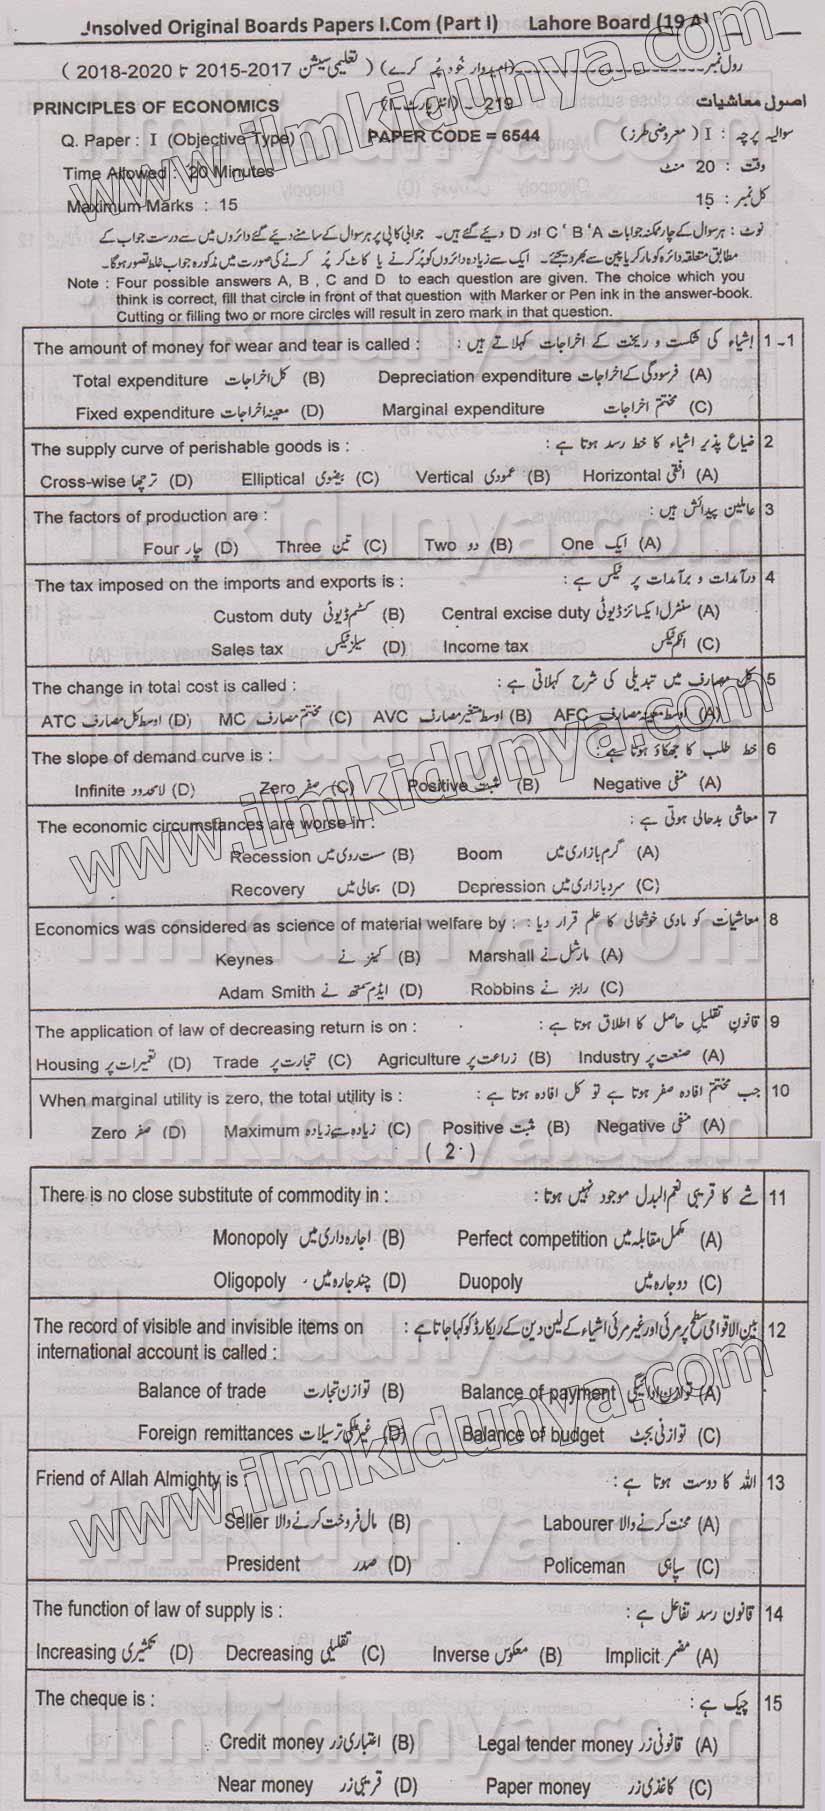 Unsolved Original Boards Papers I.Com (Part I) Lahore Board (19 A)
رول نمبر (امیدوار خود پُر کرے) (تعلیمی سیشن 2017-2015 تا 2020-2018)
PRINCIPLES OF ECONOMICS 219 - (انٹر پارٹ - I) اصول معاشیات
Q. Paper : I (Objective Type) PAPER CODE = 6544 سوالیہ پرچہ : I (معروضی طرز)
Time Allowed : 20 Minutes وقت : 20 منٹ
Maximum Marks : 15 کل نمبر : 15
نوٹ : ہر سوال کے چار ممکنہ جوابات A ' B ' C اور D دیئے گئے ہیں۔ جوابی کاپی پر ہر سوال کے سامنے دیئے گئے دائروں میں سے درست جواب کے
مطابق متعلقہ دائرہ کو مارکر یا پین سے بھر دیجئے۔ ایک سے زیادہ دائروں کو پُر کرنے یا کاٹ کر پُر کرنے کی صورت میں مذکورہ جواب غلط تصور ہوگا۔
Note : Four possible answers A, B , C and D to each question are given. The choice which you
think is correct, fill that circle in front of that question with Marker or Pen ink in the answer-book.
Cutting or filling two or more circles will result in zero mark in that question.
The amount of money for wear and tear is called : اشیاء کی شکست و ریخت کے اخراجات کہلاتے ہیں : 1 - 1
Total expenditure کل اخراجات (B) Depreciation expenditure فرسودگی کے اخراجات (A)
Fixed expenditure معینہ اخراجات (D) Marginal expenditure مختتم اخراجات (C)
The supply curve of perishable goods is : ضیاع پذیر اشیاء کا خط رسد ہوتا ہے : 2
Cross-wise ترچھا (D) Elliptical بیضوی (C) Vertical عمودی (B) Horizontal افقی (A)
The factors of production are : عاملین پیدائش ہیں : 3
Four چار (D) Three تین (C) Two دو (B) One ایک (A)
The tax imposed on the imports and exports is : درآمدات و برآمدات پر ٹیکس ہے : 4
Custom duty کسٹم ڈیوٹی (B) Central excise duty سنٹرل ایکسائز ڈیوٹی (A)
Sales tax سیلز ٹیکس (D) Income tax انکم ٹیکس (C)
The change in total cost is called : کل مصارف میں تبدیلی کی شرح کہلاتی ہے : 5
ATC اوسط کل مصارف (D) MC مختتم مصارف (C) AVC اوسط متغیر مصارف (B) AFC اوسط معینہ مصارف (A)
The slope of demand curve is : خط طلب کا جھکاؤ ہوتا ہے : 6
Infinite لامحدود (D) Zero صفر (C) Positive مثبت (B) Negative منفی (A)
The economic circumstances are worse in : معاشی بدحالی ہوتی ہے : 7
Recession سست روی میں (B) Boom گرم بازاری میں (A)
Recovery بحالی میں (D) Depression سرد بازاری میں (C)
Economics was considered as science of material welfare by : معاشیات کو مادی خوشحالی کا علم قرار دیا : 8
Keynes کینز نے (B) Marshall مارشل نے (A)
Adam Smith ایڈم سمتھ نے (D) Robbins رابنز نے (C)
The application of law of decreasing return is on : قانون تقلیل حاصل کا اطلاق ہوتا ہے : 9
Housing تعمیرات پر (D) Trade تجارت پر (C) Agriculture زراعت پر (B) Industry صنعت پر (A)
When marginal utility is zero, the total utility is : جب مختتم افادہ صفر ہوتا ہے تو کل افادہ ہوتا ہے : 10
Zero صفر (D) Maximum زیادہ سے زیادہ (C) Positive مثبت (B) Negative منفی (A)
( 2 )
There is no close substitute of commodity in : شے کا قریبی نعم البدل موجود نہیں ہوتا : 11
Monopoly اجارہ داری میں (B) Perfect competition مکمل مقابلہ میں (A)
Oligopoly چند جارہ میں (D) Duopoly دو جارہ میں (C)
The record of visible and invisible items on بین الاقوامی سطح پر مرئی اور غیر مرئی اشیاء کے لین دین کے ریکارڈ کو کہا جاتا ہے : 12
international account is called :
Balance of trade توازن تجارت (B) Balance of payment توازن ادائیگی (A)
Foreign remittances غیر ملکی ترسیلات (D) Balance of budget توازنی بجٹ (C)
Friend of Allah Almighty is : اللہ کا دوست ہوتا ہے : 13
Seller مال فروخت کرنے والا (B) Labourer محنت کرنے والا (A)
President صدر (D) Policeman سپاہی (C)
The function of law of supply is : قانون رسد تفاعل ہے : 14
Increasing تکثیری (D) Decreasing تقلیلی (C) Inverse معکوس (B) Implicit مضمر (A)
The cheque is : چیک ہے : 15
Credit money اعتباری زر (B) Legal tender money قانونی زر (A)
Near money قریبی زر (D) Paper money کاغذی زر (C)
www.ilmkidunya.com
www.ilmkidunya.com
www.ilmkidunya.com